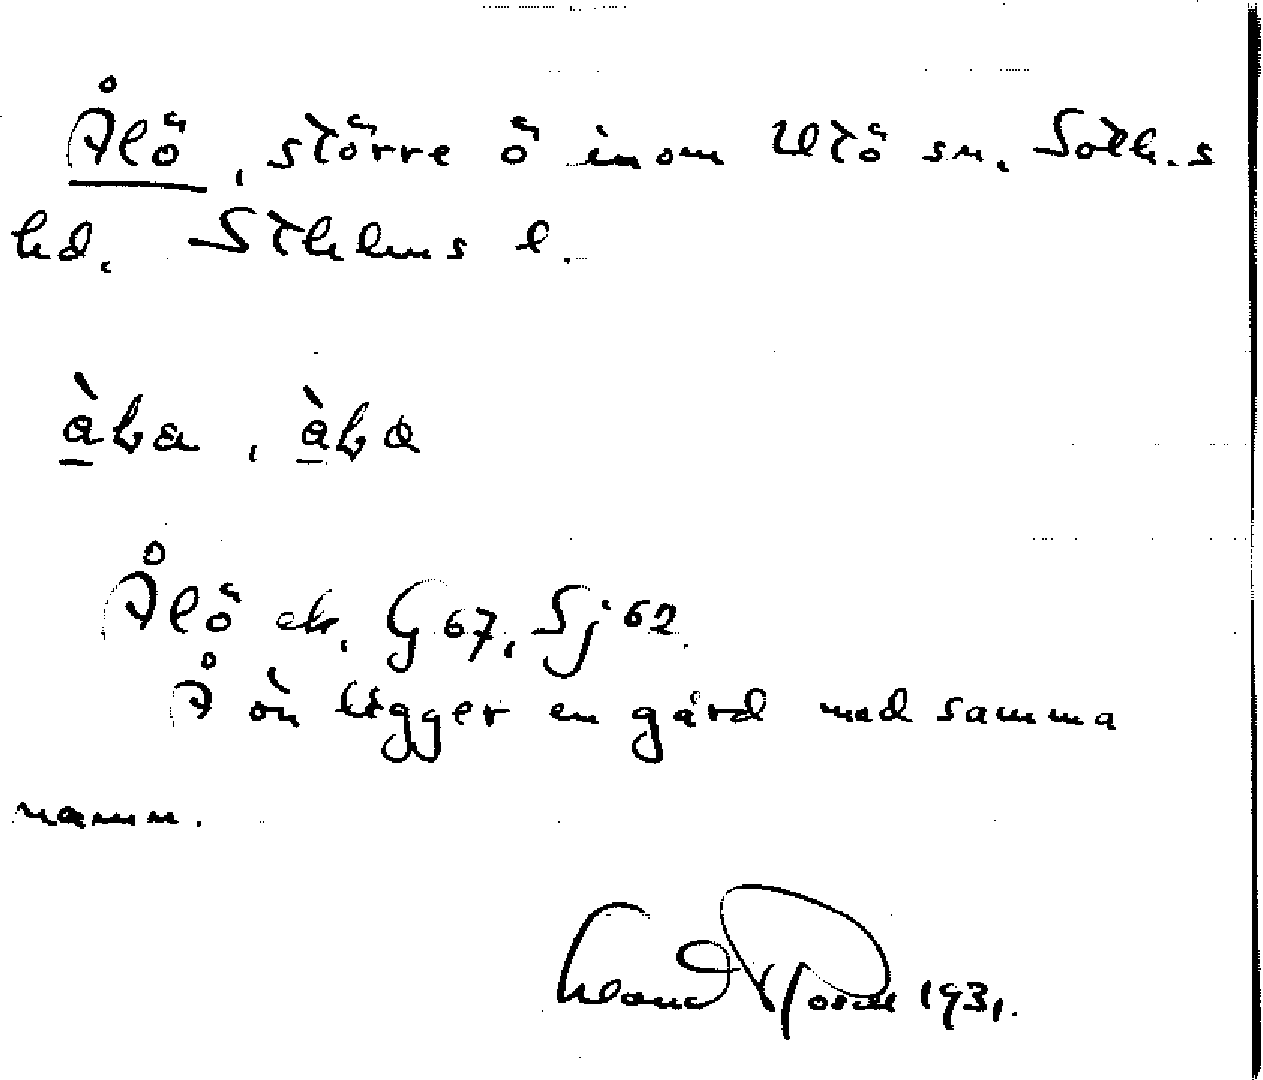 Ålö, större ö inom Utö sn, Soth.s
hd. Sthlms l.
Ålö ek. G 67, Sj 62
Å ön ligger en gård med samma
namn.
1931.